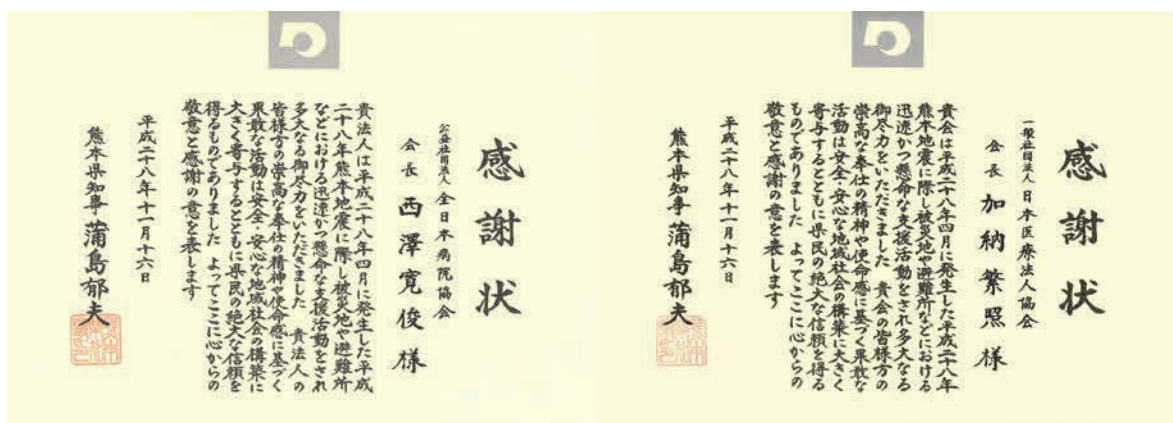 感謝状
公益社団法人 全日本病院協会
会長 西澤寛俊 様
貴法人は平成二十八年四月に発生した平成
二十八年熊本地震に際し被災地や避難所
などにおける迅速かつ懸命な支援活動をされ
多大なる御尽力をいただきました 貴法人の
皆様方の崇高な奉仕の精神や使命感に基づく
果敢な活動は安全・安心な地域社会の構築に
大きく寄与するとともに県民の絶大な信頼を
得るものでありました よってここに心からの
敬意と感謝の意を表します
平成二十八年十一月十六日
熊本県知事 蒲島郁夫
感謝状
一般社団法人 日本医療法人協会
会長 加納繁照 様
貴会は平成二十八年四月に発生した平成二十八年
熊本地震に際し被災地や避難所などにおける
迅速かつ懸命な支援活動をされ多大なる
御尽力をいただきました 貴会の皆様方の
崇高な奉仕の精神や使命感に基づく果敢な
活動は安全・安心な地域社会の構築に大きく
寄与するとともに県民の絶大な信頼を得る
ものでありました よってここに心からの
敬意と感謝の意を表します
平成二十八年十一月十六日
熊本県知事 蒲島郁夫